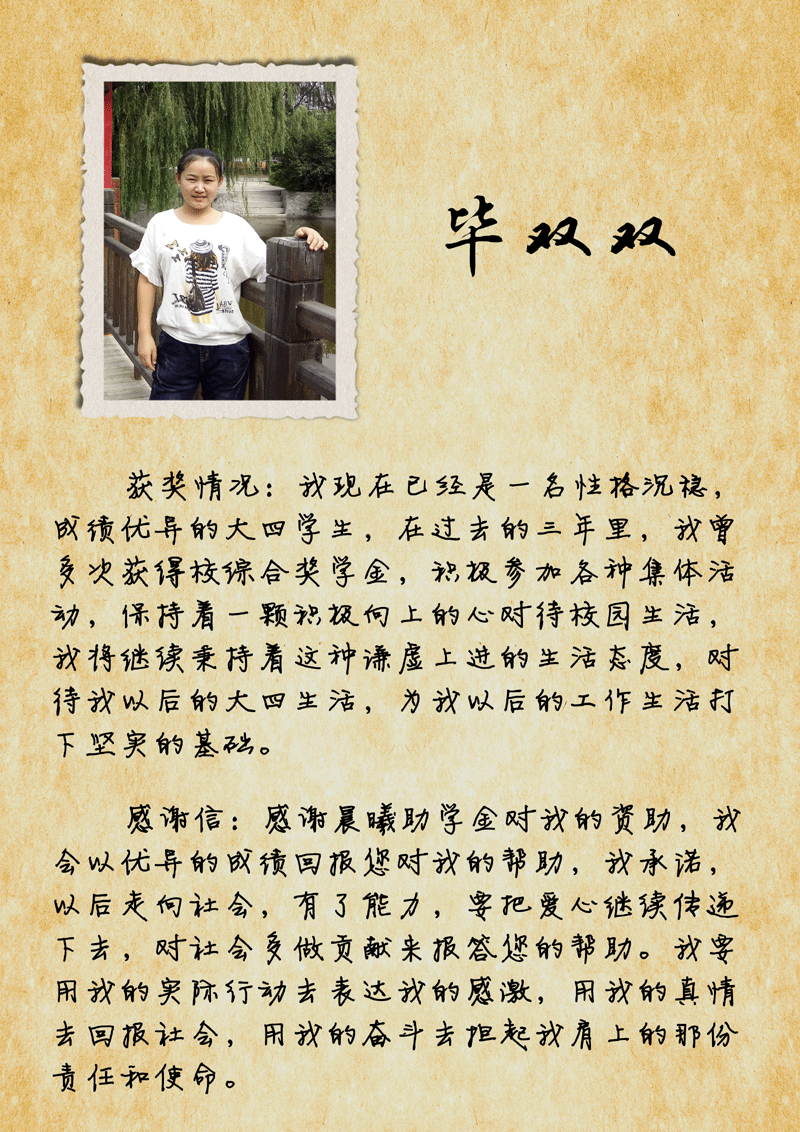 毕双双
获奖情况：我现在已经是一名性格沉稳，
成绩优异的大四学生，在过去的三年里，我曾
多次获得校综合奖学金，积极参加各种集体活
动，保持着一颗积极向上的心对待校园生活，
我将继续秉持着这种谦虚上进的生活态度，对
待我以后的大四生活，为我以后的工作生活打
下坚实的基础。
感谢信：感谢晨曦助学金对我的资助，我
会以优异的成绩回报您对我的帮助，我承诺，
以后走向社会，有了能力，要把爱心继续传递
下去，对社会多做贡献来报答您的帮助。我要
用我的实际行动去表达我的感激，用我的真情
去回报社会，用我的奋斗去担起我肩上的那份
责任和使命。